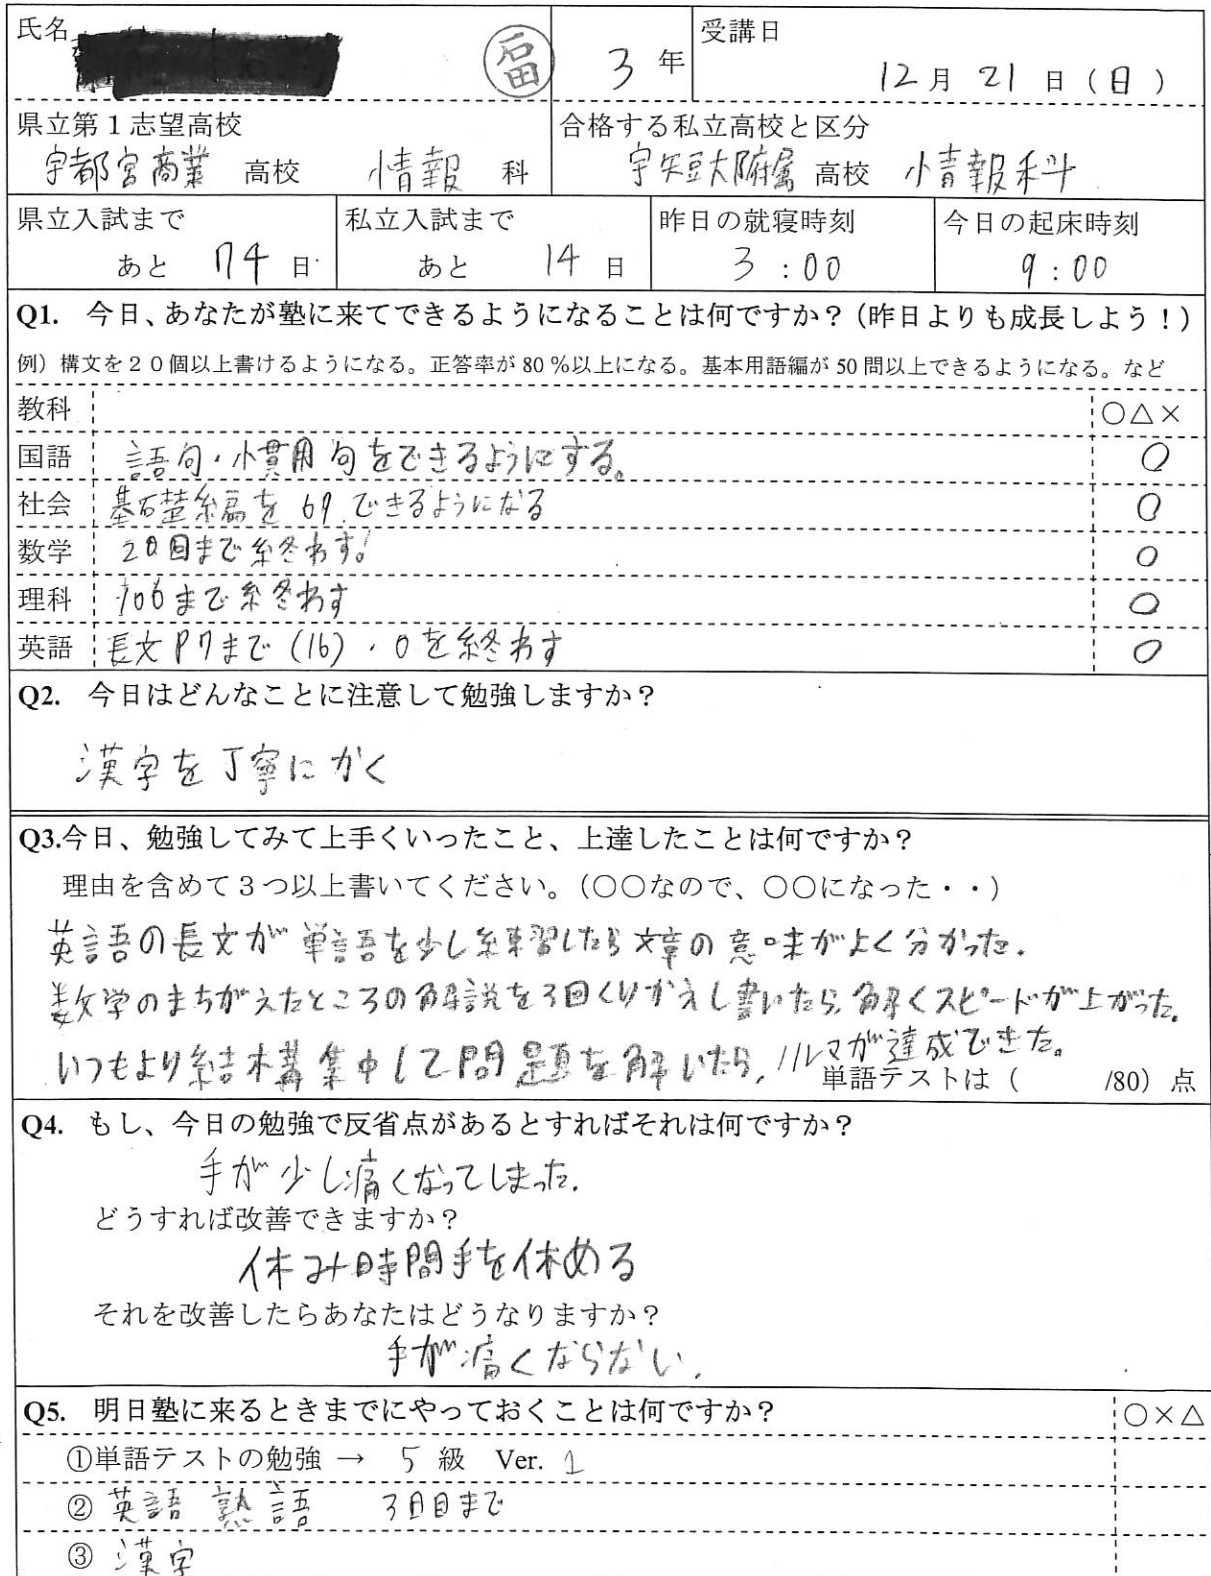 氏名 福 3 年 受講日 12 月 21 日 (日)
県立第1志望高校 合格する私立高校と区分
宇都宮商業 高校 情報 科 宇短大附属 高校 情報科
県立入試まで 私立入試まで 昨日の就寝時刻 今日の起床時刻
あと 74 日 あと 14 日 3 : 00 9 : 00
Q1. 今日、あなたが塾に来てできるようになることは何ですか?(昨日よりも成長しよう!)
例)構文を20個以上書けるようになる。正答率が80%以上になる。基本用語編が50問以上できるようになる。など
教科 ○△×
国語 語句・慣用句をできるようにする。 ○
社会 基礎編を 69 できるようになる ○
数学 20回まで終わす! ○
理科 106まで終わす ○
英語 長文P7まで (16)・0を終わす ○
Q2. 今日はどんなことに注意して勉強しますか?
漢字を丁寧にかく
Q3.今日、勉強してみて上手くいったこと、上達したことは何ですか?
理由を含めて3つ以上書いてください。(○○なので、○○になった・・)
英語の長文が単語を少し練習したら文章の意味がよく分かった.
数学のまちがえたところの解説を3回くりかえし書いたら、解くスピードが上がった。
いつもより結構集中して問題を解いたら、ノルマが達成できた。
単語テストは( /80)点
Q4. もし、今日の勉強で反省点があるとすればそれは何ですか?
手が少し痛くなってしまった.
どうすれば改善できますか?
休み時間手を休める
それを改善したらあなたはどうなりますか?
手が痛くならない.
Q5. 明日塾に来るときまでにやっておくことは何ですか? ○×△
①単語テストの勉強 → 5 級 Ver. 1
② 英語 熟語 3日目まで
③ 漢字